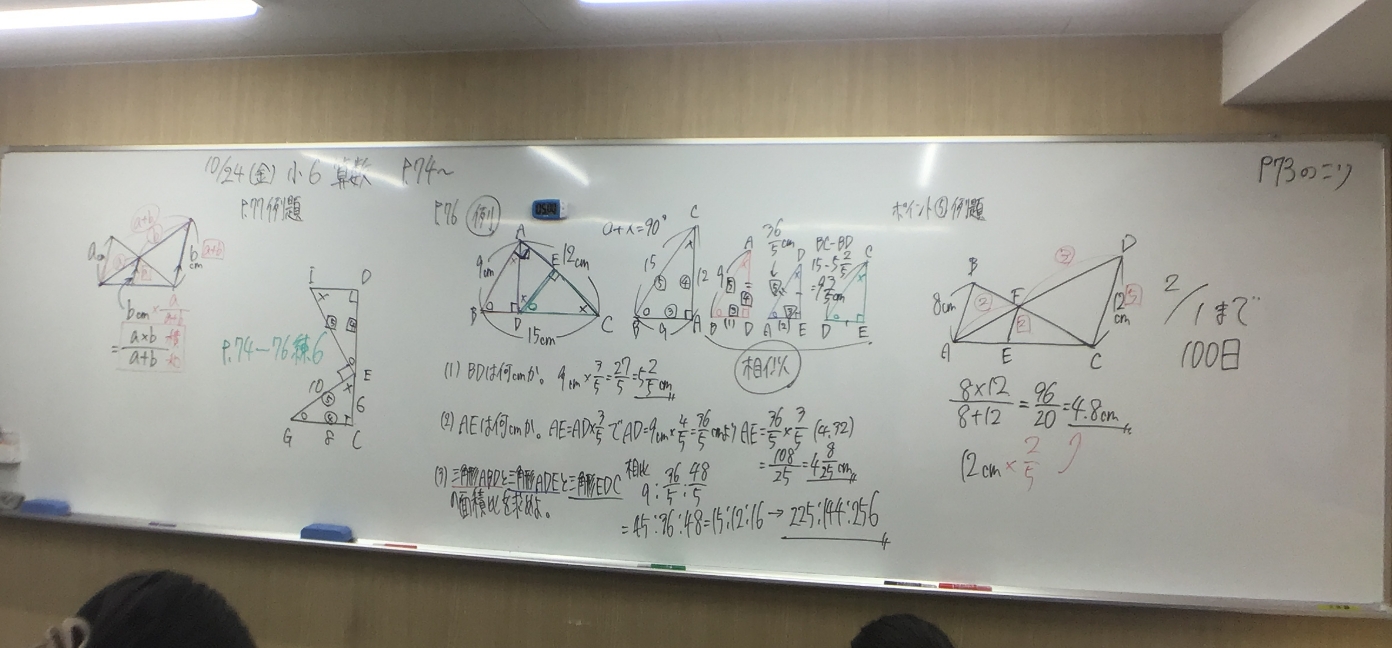 10/24(金) 小6 算数 P.74~
P73のこり
P.77例題
a+b
a
b
cm
a+b
bcm × a/a+b
= a×b 積/a+b 和
P.74-76練6
I
D
E
10
6
G
8
C
P.76 例
A
9cm
12cm
E
B
D
C
15cm
○+×=90°
C
15
12
B
9
A
A
9
B (1) D
36/5 cm
D
A (2) E
BC-BD
15-5 2/5
C
D
E
相似
(1) BDは何cmか。 9cm×3/5=27/5=5 2/5cm
(2) AEは何cmか。 AE=AD×3/5でAD=9cm×4/5=36/5cmよりAE=36/5×3/5 (4.32)
=108/25=4 8/25cm
(3) 三角形ABDと三角形ADEと三角形EDC
の面積比を求めよ。
相比
9:36/5:48/5
=45:36:48=15:12:16→225:144:256
ポイント⑤例題
D
③
B
8cm
②
F
12cm
③
②
A
E
C
8×12/8+12=96/20=4.8cm
(12cm×2/5)
2/1まで
100日